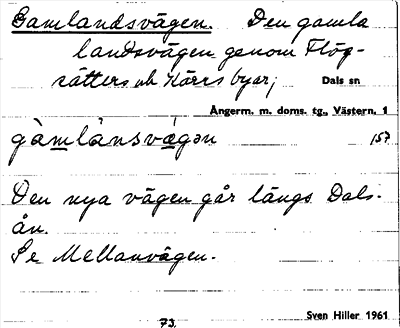 Gamlandsvägen. Den gamla
landsvägen genom Flög-
rätters och Närrs byar; Dals sn
Ångerm. m. doms. tg., Västern. 1
gàmlánsvǽgən 157
Den nya vägen går längs Dals-
ån.
Se Mellanvägen.
73. Sven Hiller 1961